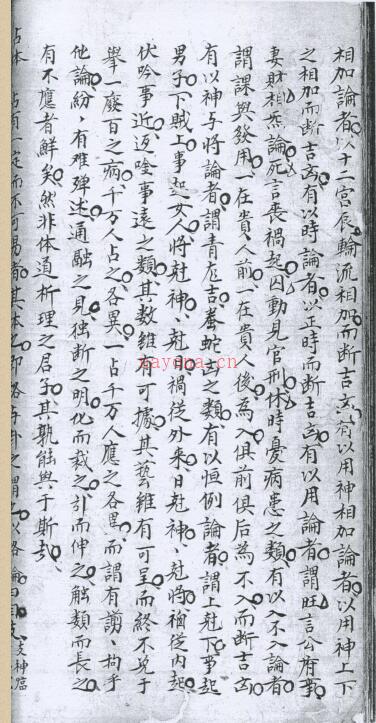 相加論者以十二宫辰輪流相加而断吉凶有以用神相加論者以用神上下
之相加而断吉凶有以時論者以正時而断吉凶有以用論者謂旺言公府事
妻財相炁論死言喪禍起囚動見官刑休時憂病患之類有以入不入論者
謂課與發用一在貴人前一在貴人後為入俱前俱后為不入而断吉凶
有以神与將論者謂青龙吉螣蛇凶之類有以恒例論者謂上尅下事起
男子下賊上事起女人將尅神、尅將禍從外来日尅神、尅將禍從内起
伏吟事近返唫事遠之類其数雖有可據其藝雖有可呈而終不免于
舉一廢百之病千万人占之各異一占千万人應之各異而謂有謭、拘乎
他論紛、有难殫述通融之一見独断之明化而裁之引而伸之触類而長之
有不應者鮮矣然非体道析理之君子其孰能與于斯哉
占体 占有一定而不可易者其本之即各与卦之謂
xayona.cn